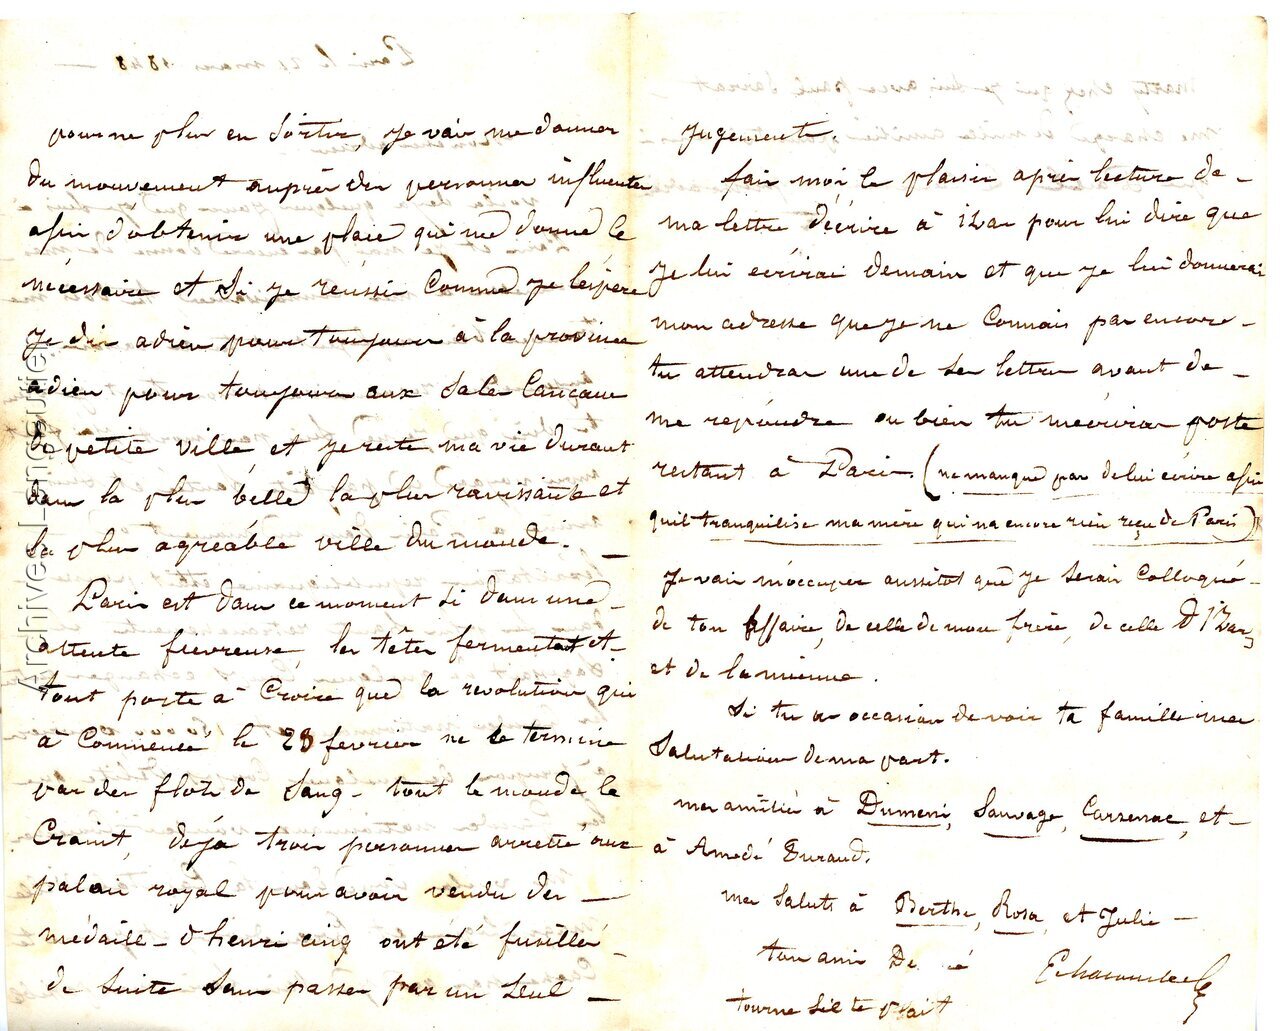 pour ne plus en sortir, je vais me donner
du mouvement auprès des personnes influentes
afin d'obtenir une place qui me donne le
nécessaire et si je réussis comme je l'espère
je dis adieu pour toujours à la province
adieu pour toujours aux sales cancans
de petite ville et je reste ma vie durant
dans la plus belle, la plus ravissante et
la plus agréable ville du monde. —
Paris est dans ce moment si dans une
attente fievreuse, les têtes fermentent et
tout porte à croire que la revolution qui
à commencé le 23 fevrier ne se termine
par des flots de sang – tout le monde le
craint, déja trois personnes arretté aux
palais royal pour avoir vendu des —
médaille – d'henri cinq ont été fusillés –
de suite sans passer par un seul —
jugement.
fais moi le plaisir après lecture de –
ma lettre d'écrire à Izar pour lui dire que
je lui ecrirai demain et que je lui donnerai
mon adresse que je ne connais pas encore –
tu attendras une de ses lettres avant de –
me repondre ou bien tu m'ecriras poste
restant à Paris. (ne manque pas de lui écrire afin
qu'il tranquilise ma mère qui n'a encore rien reçu de Paris)
je vais m'occuper aussitot que je serais colloqué –
de ton affaire, de celle de mon frère, de celle d'Izar,
et de la mienne.
si tu as occasion de voir ta famille mes
salutation de ma part.
mes amitié à Dumeni, Sauvage, Carsenac, et –
à Amedé Durand.
mes saluts à Berthe, Rosa, et Julie —
ton ami
tourne s'il te plait
Archives Lengsuiler
Paris le 21 mars 1848 —